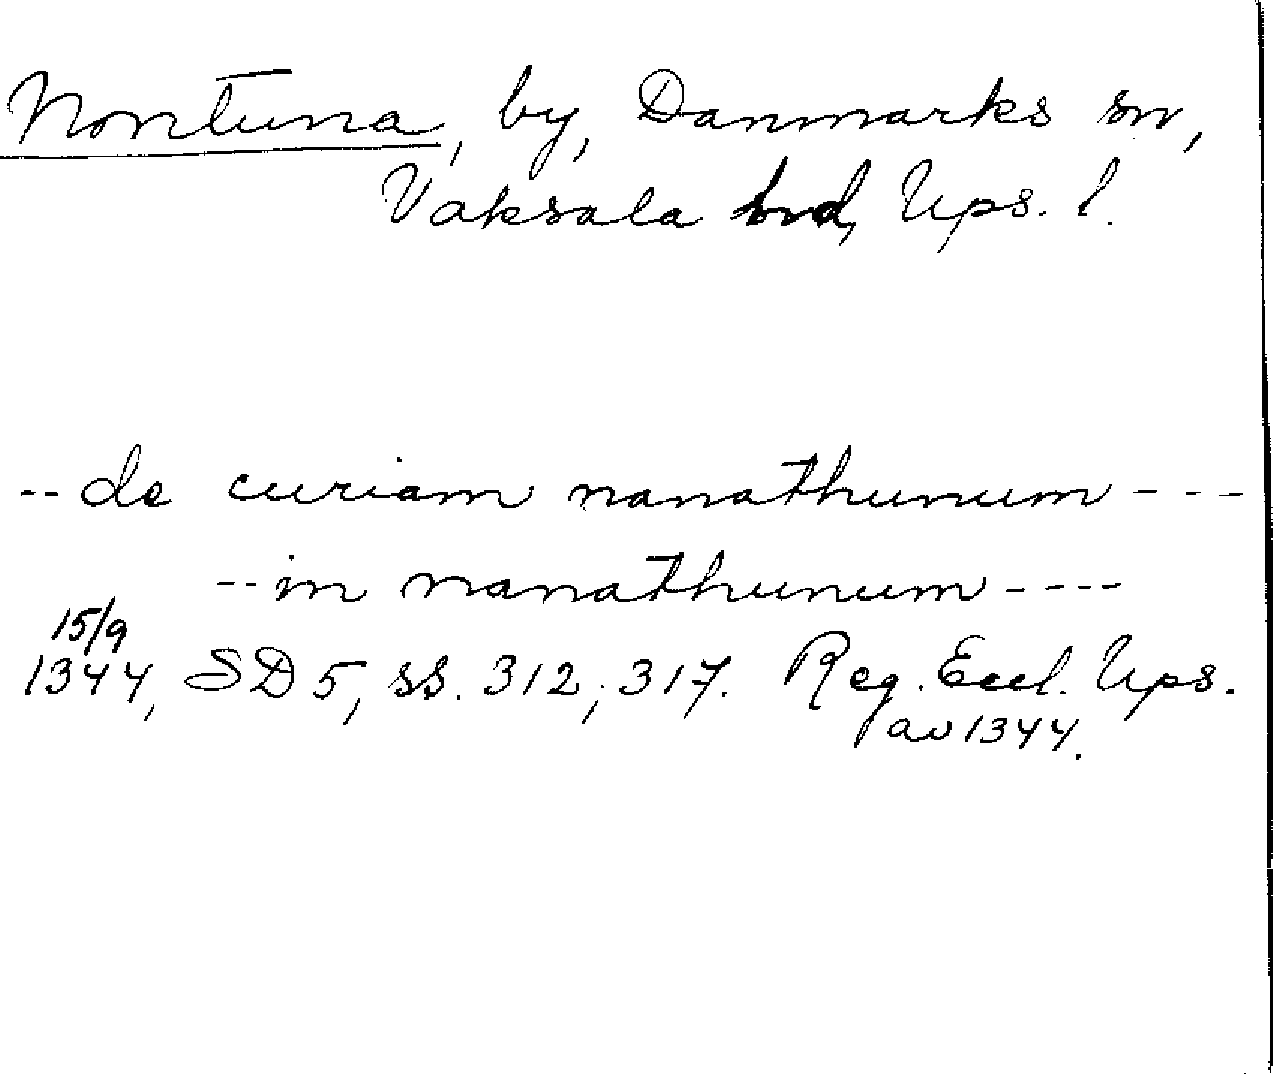 Nontuna, by, Danmarks sn,
Vaksala hd, Ups. l.
-- de curiam nanathunum ---
-- in nanathunum ----
15/9
1344, SD 5, ss. 312, 317. Reg. Eccl. Ups.
av 1344.